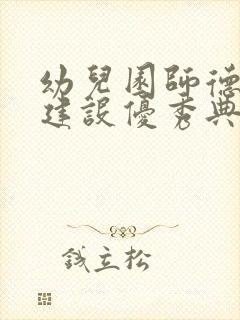 幼兒園師德
建設優秀典
錢立松